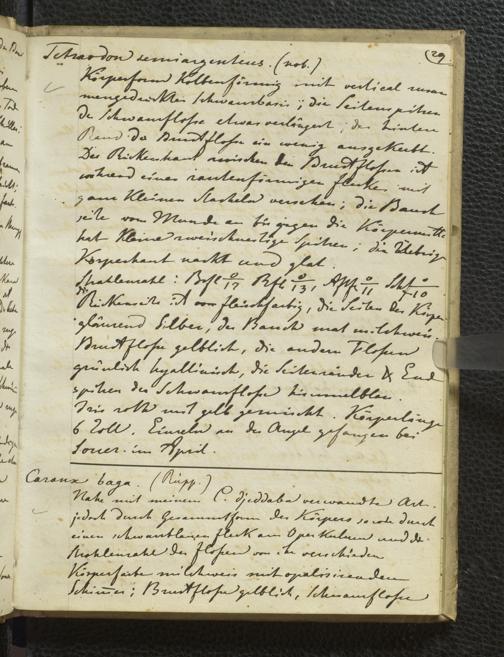 29
Tetraodon semiargenteus. (nob.)
Körperform Kolbenförmig mit vertical zusam
mengedrückter Schwanzbasis; die Seitenspitzen
der Schwanzflosse etwas verlängert; der hintere
Rand der Brustflosse ein wenig ausgekerbt.
Die Rückenhaut zwischen den Brustflossen ist
während eines rautenförmigen Fleckes mit
ganz kleinen Stacheln versehen; die Bauch
seite vom Munde an bis gegen die Körpermitte
hat kleine zweischneitige Spitzen; die Uebrige
Körperhaut nackt und glat.
Strahlenzahl: Brfl 0/17 Rfl 0/13, Afl. 0/11 Schfl 0/10
Rückenseite ist fleischfarbig, die Seiten des Körpers
glänzend Silber, der Bauch mat milchweis,
Brustflosse gelblich, die andern Flossen
grünlich hyallinisch, die Seitenränder & End
spitzen der Schwanzflosse himmelblau.
Iris roth mit gelb gemischt. Körperlänge
6 Zoll. Einzeln an der Angel gefangen bei
im April.
Caranx baga. (Rüpp.)
Nahe mit meinem C. djeddaba verwandte Art.
jedoch durch Gesammtform des Körpers sowie durch
einen schwartzen Fleck am Operkulum und die
Strahlenzahl der Flossen von ihr verschieden
Körperfarbe milchweis mit opalisirendem
Schimer; Brustflosse gelblich, Schwanzflosse